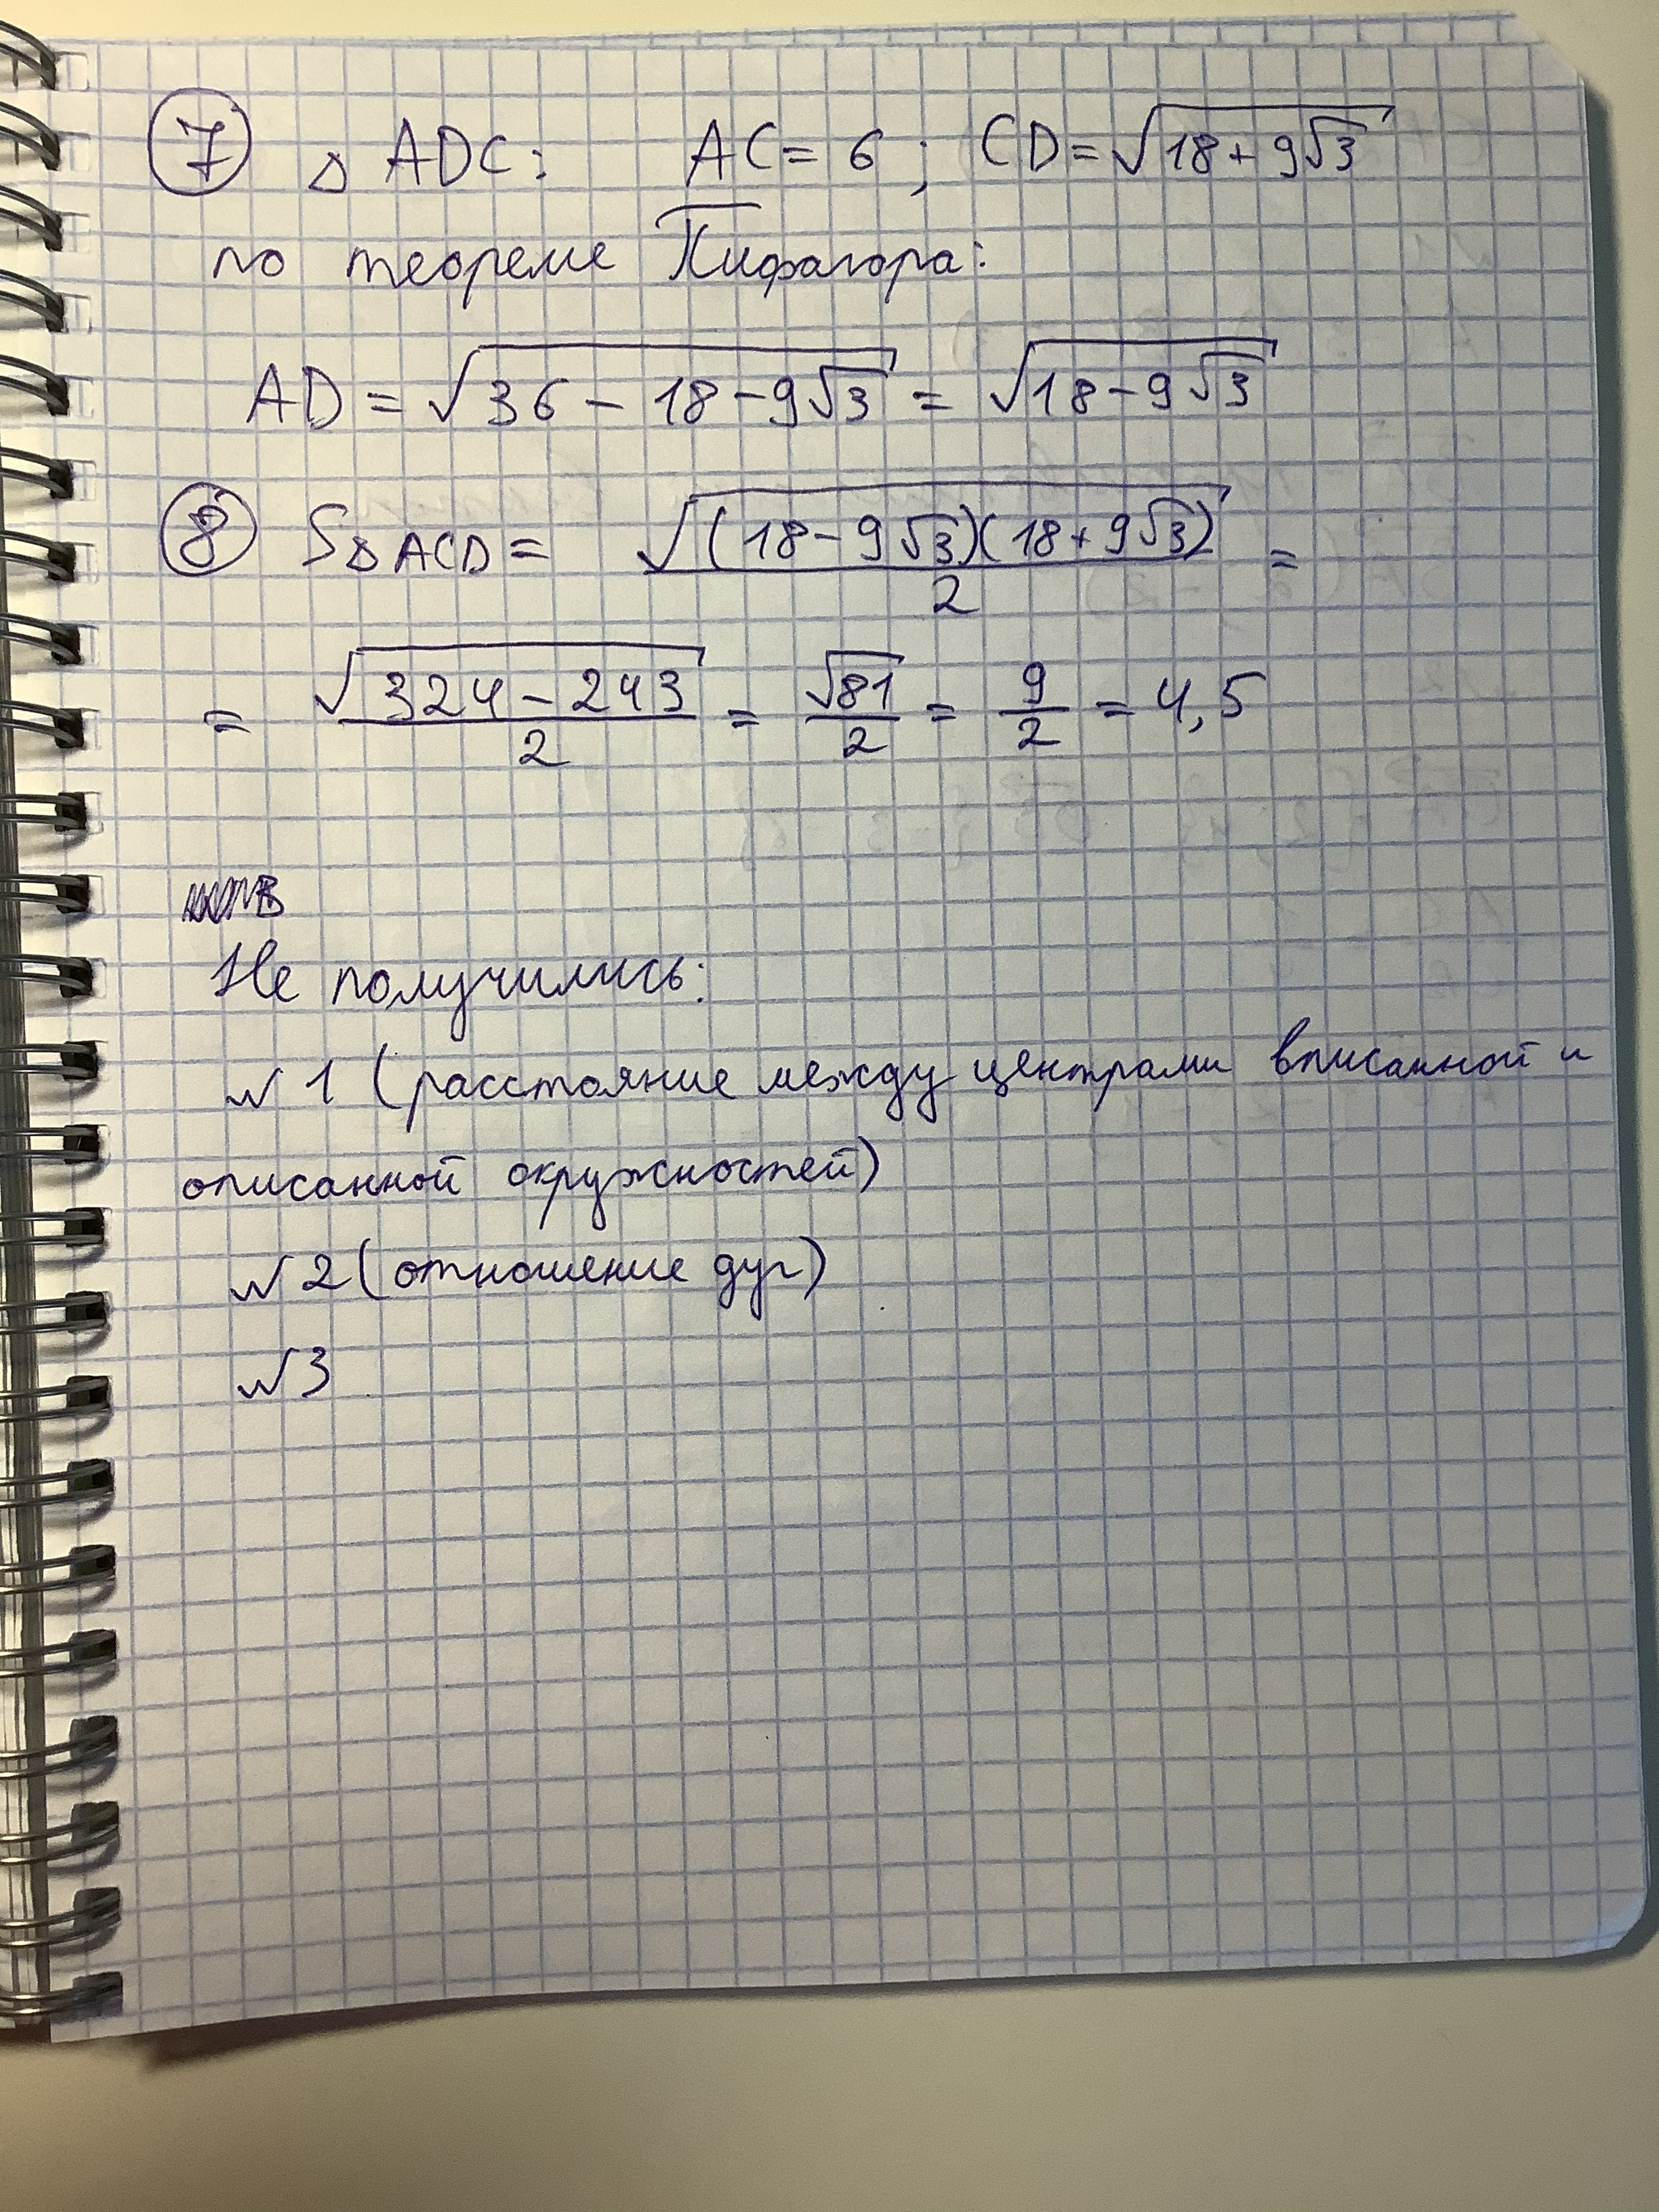 7 △ ADC: AC = 6 ; CD = √(18 + 9√3)
по теореме Пифагора:
AD = √(36 - 18 - 9√3) = √(18 - 9√3)
8 S△ACD = √((18 - 9√3)(18 + 9√3))/2 =
= √(324 - 243)/2 = √81/2 = 9/2 = 4,5
Не получились:
№ 1 (расстояние между центрами вписанной и
описанной окружностей)
№ 2 (отношение дуг)
№ 3